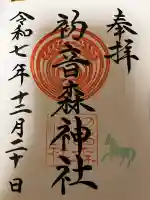 奉拝
初音森神社
令和七年十二月二十日